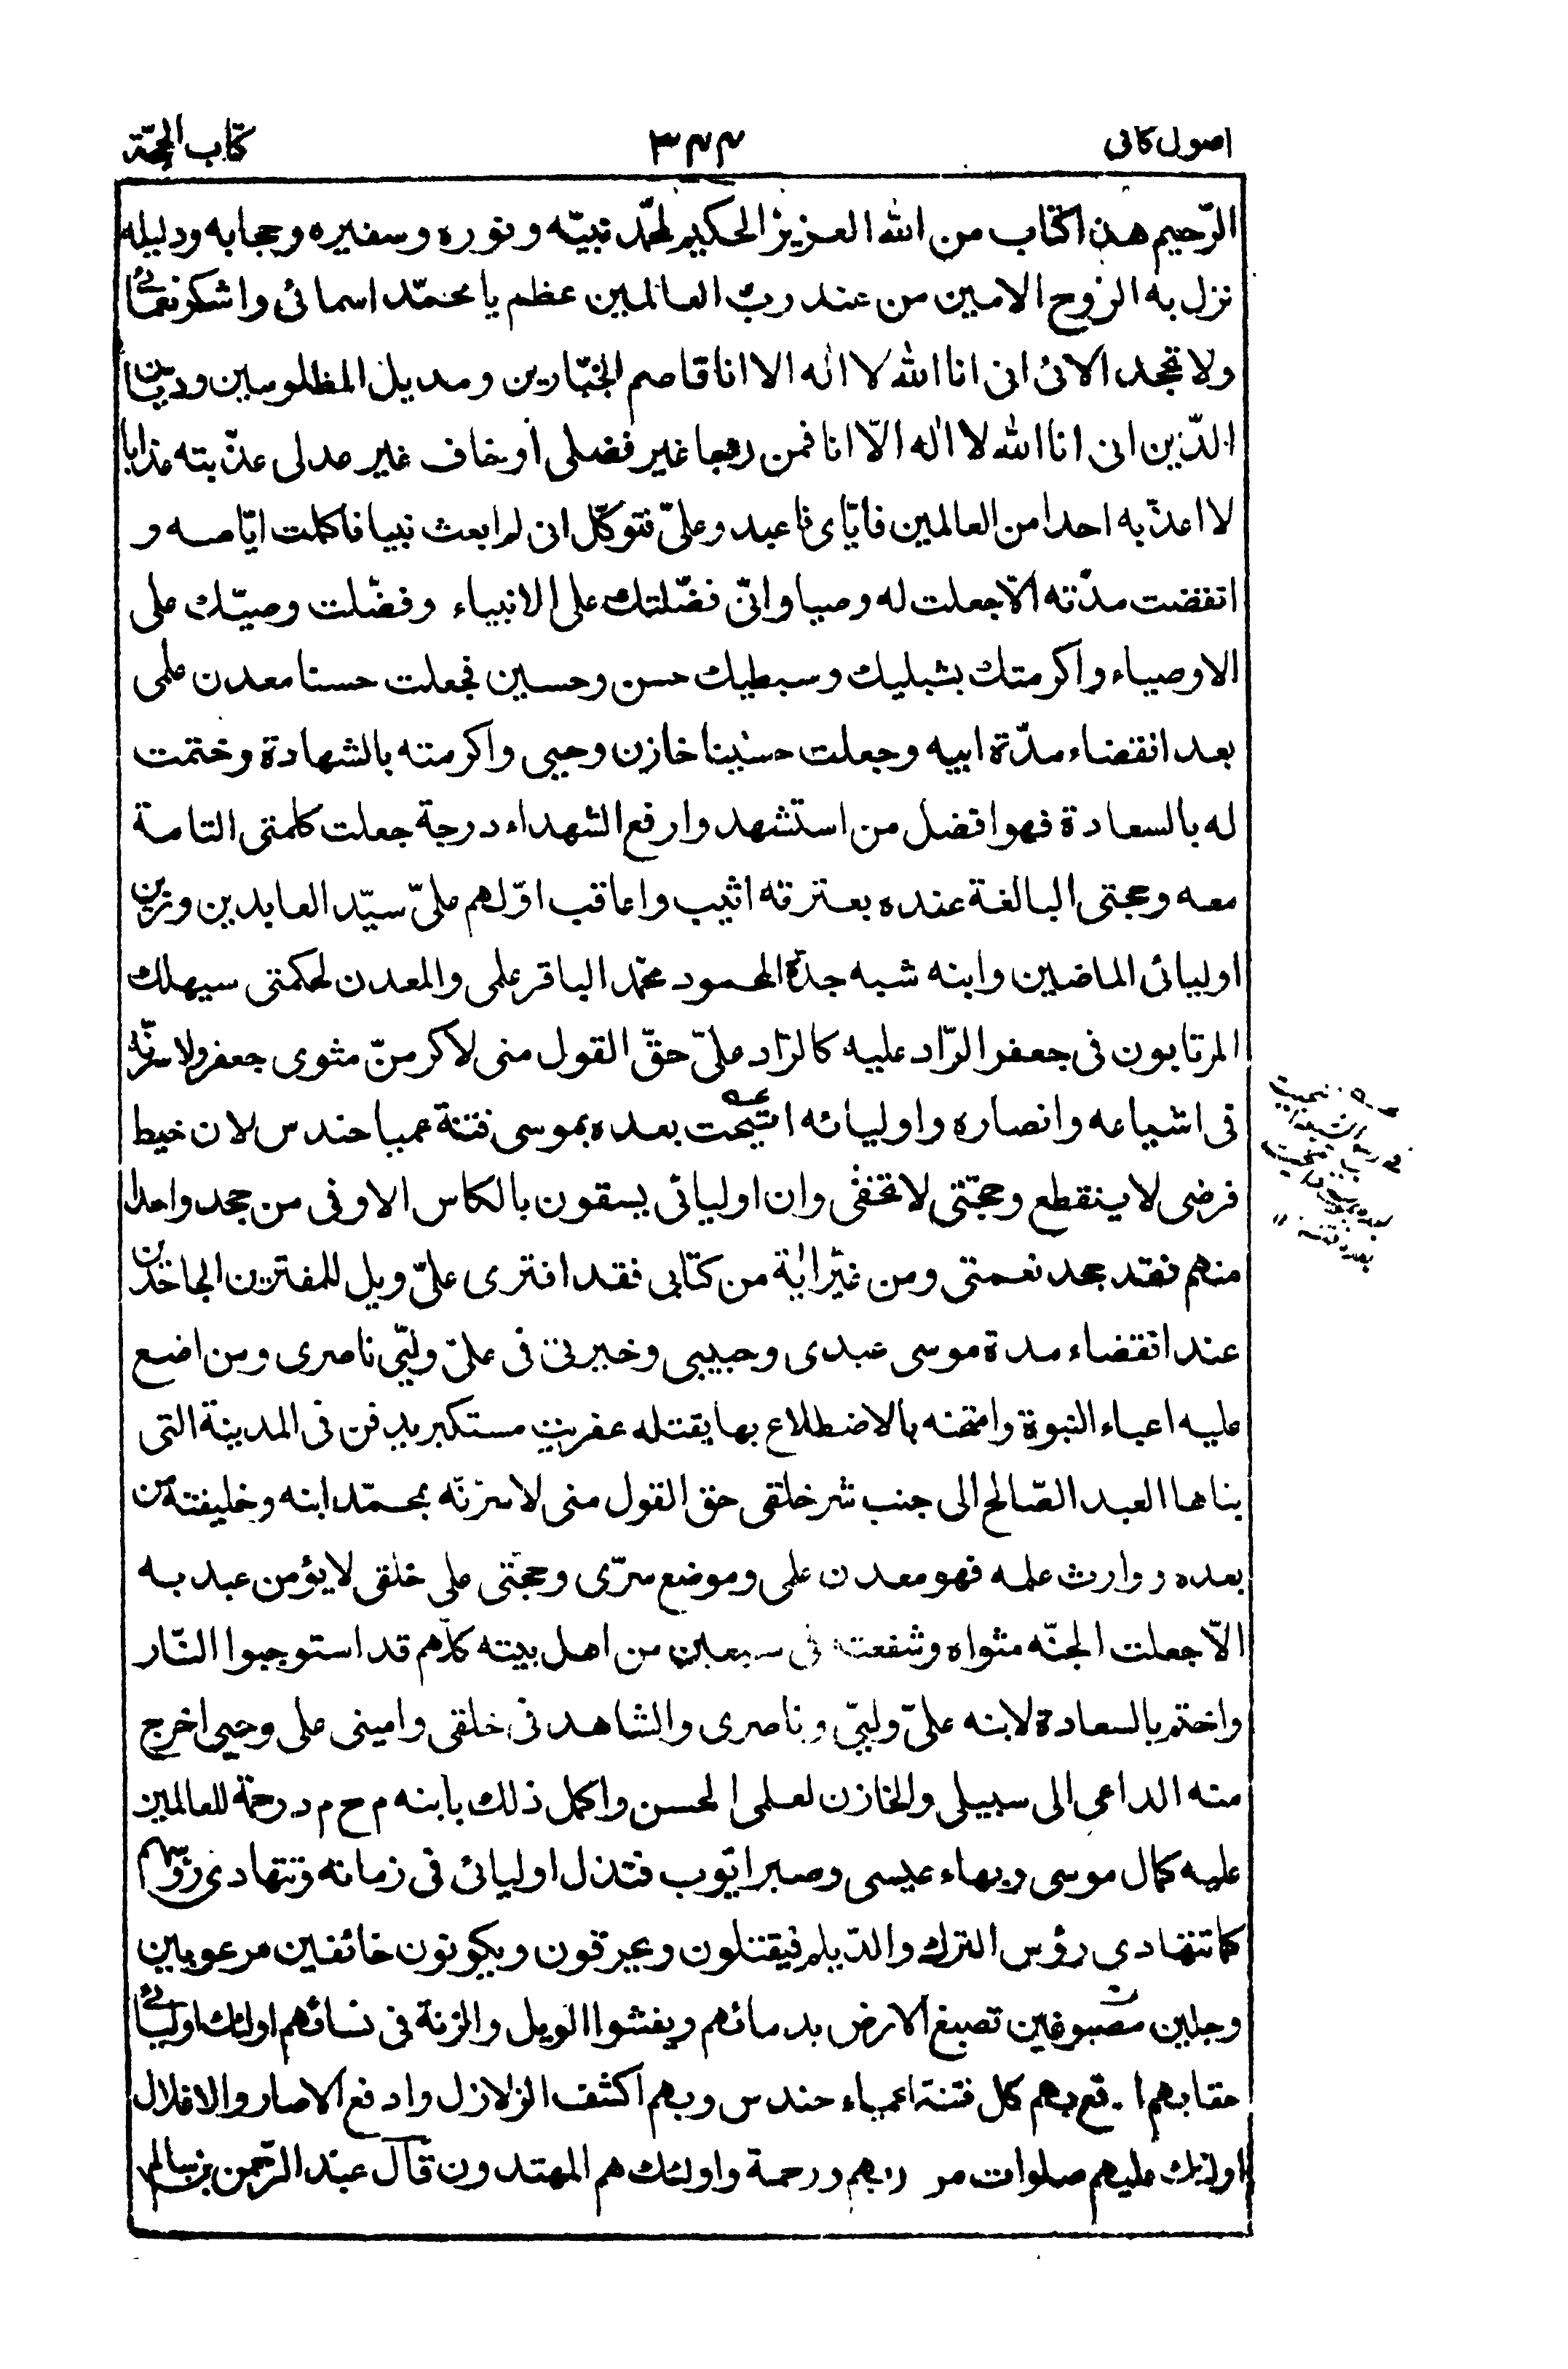 اصول کافی ٣٤٤ کتاب الحجّة
الرّحیم هذا کتاب من الله العزیز الحکیم لمحمّد نبیّه و نوره و سفیره و حجابه ودلیله
نزل به الرّوح الامین من عند ربّ العالمین عظم یا محمّد اسمائی واشکر نعمائی
ولا تجحد آلائی انی انا الله لا اله الا انا قاصم الجبّارین ومدیل المظلومین ودیّان
الدّین انی انا الله لا اله الّا انا فمن رجا غیر فضلی أو خاف غیر عدلی عذّبته عذابا
لا اعذّبه احدا من العالمین فایّای فاعبد وعلیّ فتوکّل انی لم ابعث نبیا فاکملت ایّامه و
انقضت مدّته الّا جعلت له وصیا وانّی فضّلتك علی الانبیاء وفضّلت وصیّك علی
الاوصیاء واکرمتك بشبلیك وسبطیك حسن وحسین فجعلت حسنا معدن علمی
بعد انقضاء مدّة ابیه وجعلت حسینا خازن وحیی واکرمته بالشهادة وختمت
له بالسعادة فهو افضل من استشهد وارفع الشهداء درجة جعلت کلمتی التامة
معه وحجتی البالغة عنده بعترته اثیب واعاقب اوّلهم علیّ سیّد العابدین وزین
اولیائی الماضین وابنه شبه جدّه المحمود محمّد الباقر علمی والمعدن لحکمتی سیهلك
المرتابون فی جعفر الرّاد علیه کالرّاد علیّ حقّ القول منی لاکرمنّ مثوی جعفر ولاسرنّه
فی اشیاعه وانصاره واولیائه اتیحت بعده بموسی فتنة عمیا حندس لان خیط
فرضی لا ینقطع وحجّتی لا تخفی وان اولیائی یسقون بالکاس الاوفی من جحد واحدا
منهم فقد جحد نعمتی ومن غیّر ایة من کتابی فقد افتری علیّ ویل للمفترین الجاحدین
عند انقضاء مدة موسی عبدی وحبیبی وخیرتی فی علیّ ولیّی ناصری ومن اضع
علیه اعباء النبوة وامتحنه بالاضطلاع بها یقتله عفریت مستکبر یدفن فی المدینة التی
بناها العبد الصّالح الی جنب شر خلقی حق القول منی لاسرّنّه بمحمّد ابنه وخلیفته من
بعده ووارث علمه فهو معدن علمی وموضع سرّی وحجتی علی خلقی لا یؤمن عبد به
الّا جعلت الجنّه مثواه وشفعته فی سبعین من اهل بیته کلّهم قد استوجبوا النّار
واختم بالسعادة لابنه علیّ ولیّی وناصری والشاهد فی خلقی وامینی علی وحیی اخرج
منه الداعی الی سبیلی والخازن لعلمی الحسن واکمل ذلك بابنه م ح م د رحمة للعالمین
علیه کمال موسی وبهاء عیسی وصبر ایّوب فتذل اولیائی فی زمانه وتتهادی رؤسهم
کما تتهادی رؤس الترك والدّیلم فیقتلون ویحرقون ویکونون خائفین مرعوبین
وجلین مصبوغین تصبغ الارض بدمائهم ویفشوا الویل والرنة فی نسائهم اولئك اولیائی
حقا بهم ادفع بهم کل فتنة اعمیاء حندس وبهم اکشف الزلازل وادفع الاصار والاغلال
اولئك علیهم صلوات من ربهم ورحمة واولئك هم المهتدون قال عبد الرّحمن بن سالم